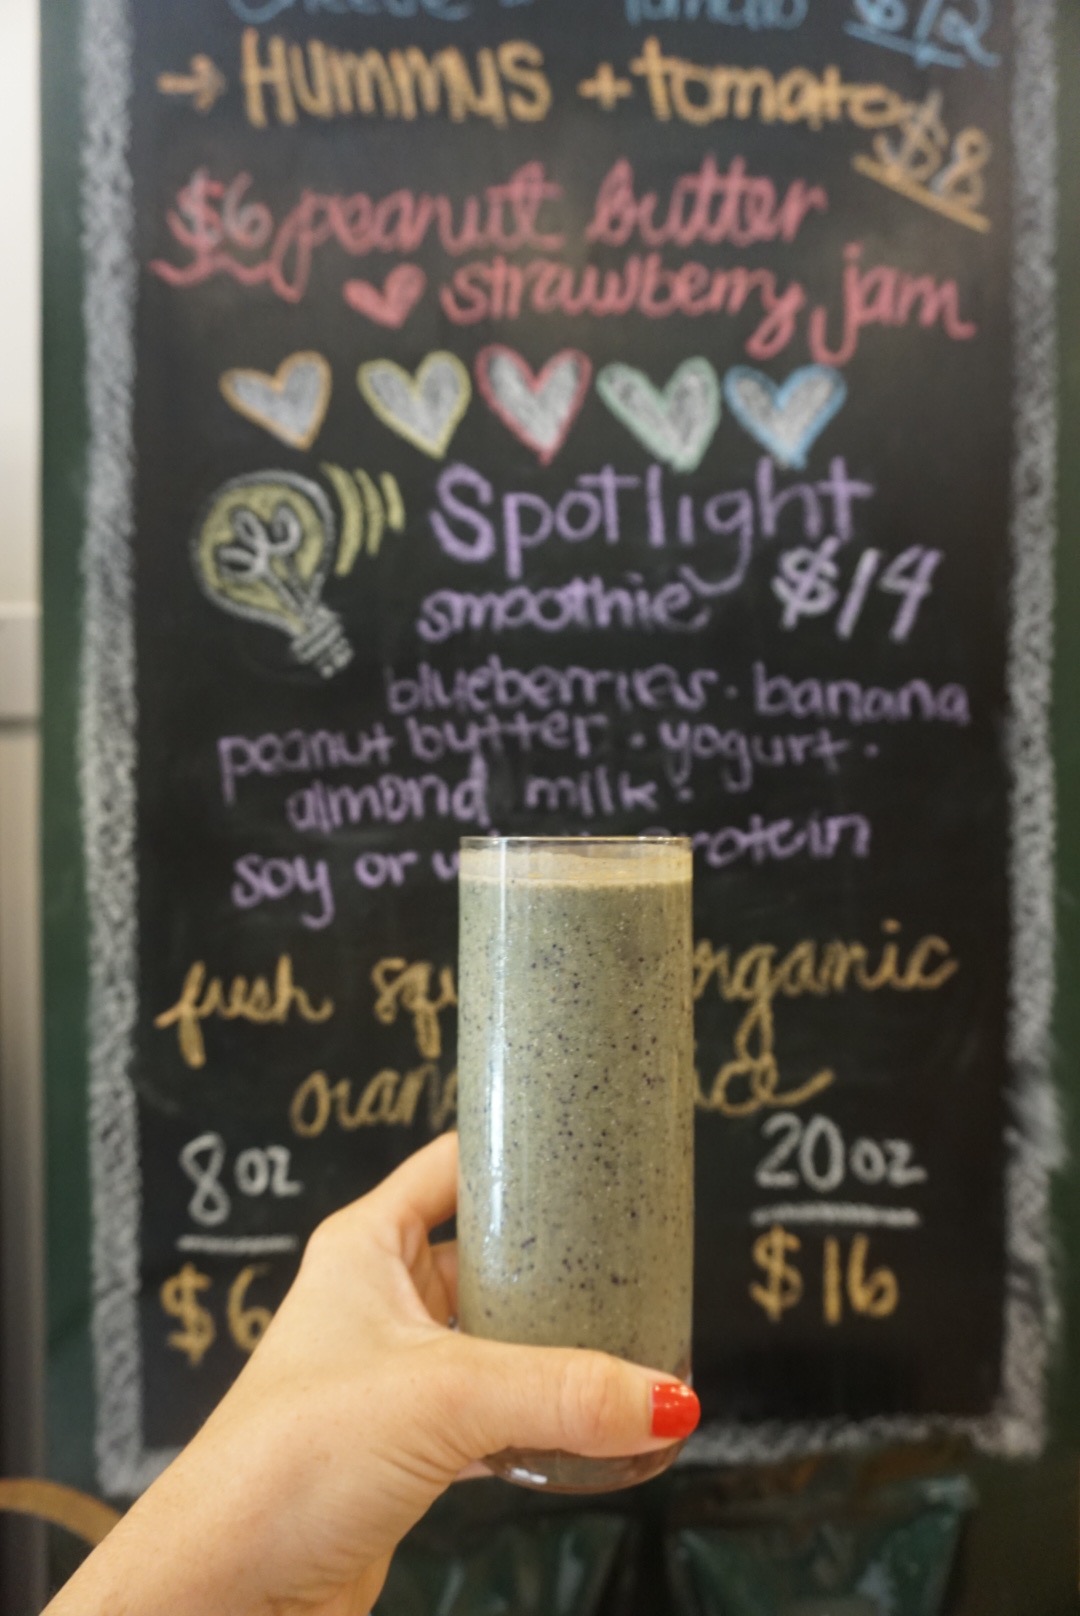 tomato $12
→ HUMMUS + tomato
$8
$6 peanut butter
strawberry jam
Spotlight
smoothie $14
blueberries · banana
peanut butter · yogurt ·
almond milk ·
soy or protein
fresh organic
8oz 20oz
$6 $16